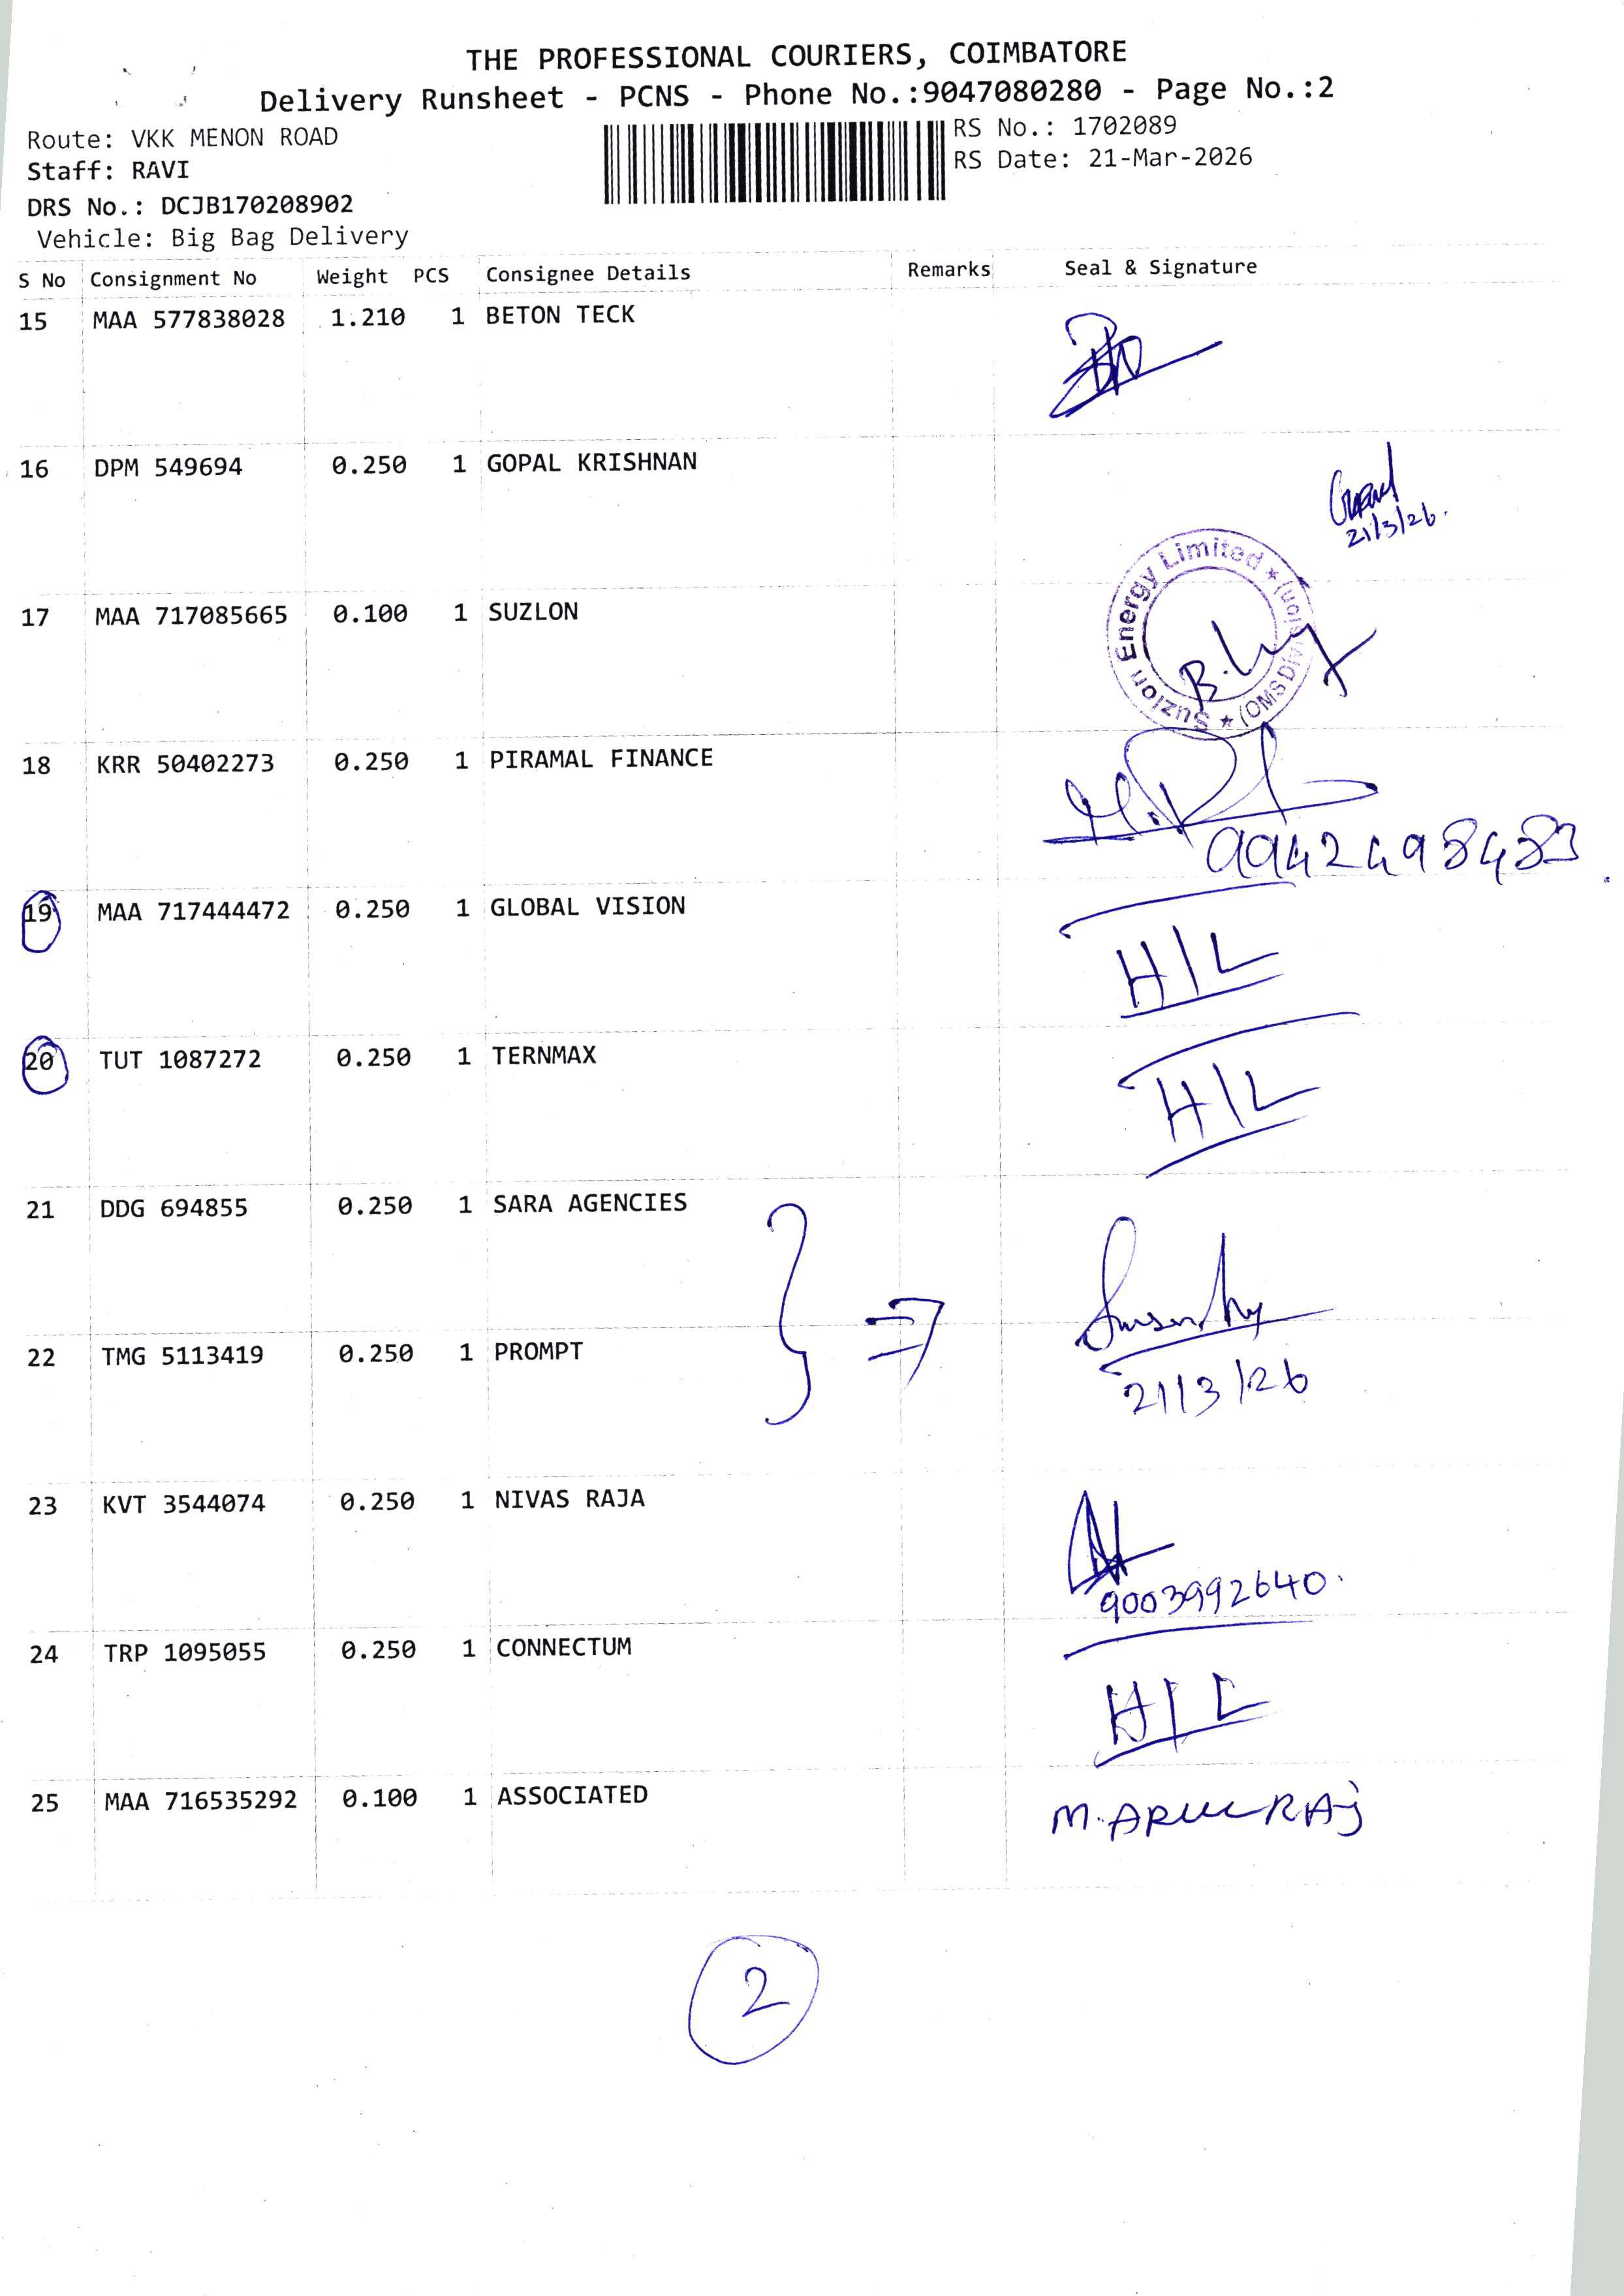 THE PROFESSIONAL COURIERS, COIMBATORE
Delivery Runsheet - PCNS - Phone No.:9047080280 - Page No.:2
Route: VKK MENON ROAD
RS No.: 1702089
Staff: RAVI
RS Date: 21-Mar-2026
DRS No.: DCJB170208902
Vehicle: Big Bag Delivery
S No Consignment No Weight PCS Consignee Details Remarks Seal & Signature
15 MAA 577838028 1.210 1 BETON TECK
16 DPM 549694 0.250 1 GOPAL KRISHNAN
21/3/26.
Suzlon Energy Limited ★ (OMS Division) ★
17 MAA 717085665 0.100 1 SUZLON
18 KRR 50402273 0.250 1 PIRAMAL FINANCE
9942498483
19 MAA 717444472 0.250 1 GLOBAL VISION
H/L
20 TUT 1087272 0.250 1 TERNMAX
H/L
21 DDG 694855 0.250 1 SARA AGENCIES
22 TMG 5113419 0.250 1 PROMPT
21/3/26
23 KVT 3544074 0.250 1 NIVAS RAJA
9003992640.
24 TRP 1095055 0.250 1 CONNECTUM
H/L
25 MAA 716535292 0.100 1 ASSOCIATED
M. ARULRAJ
2